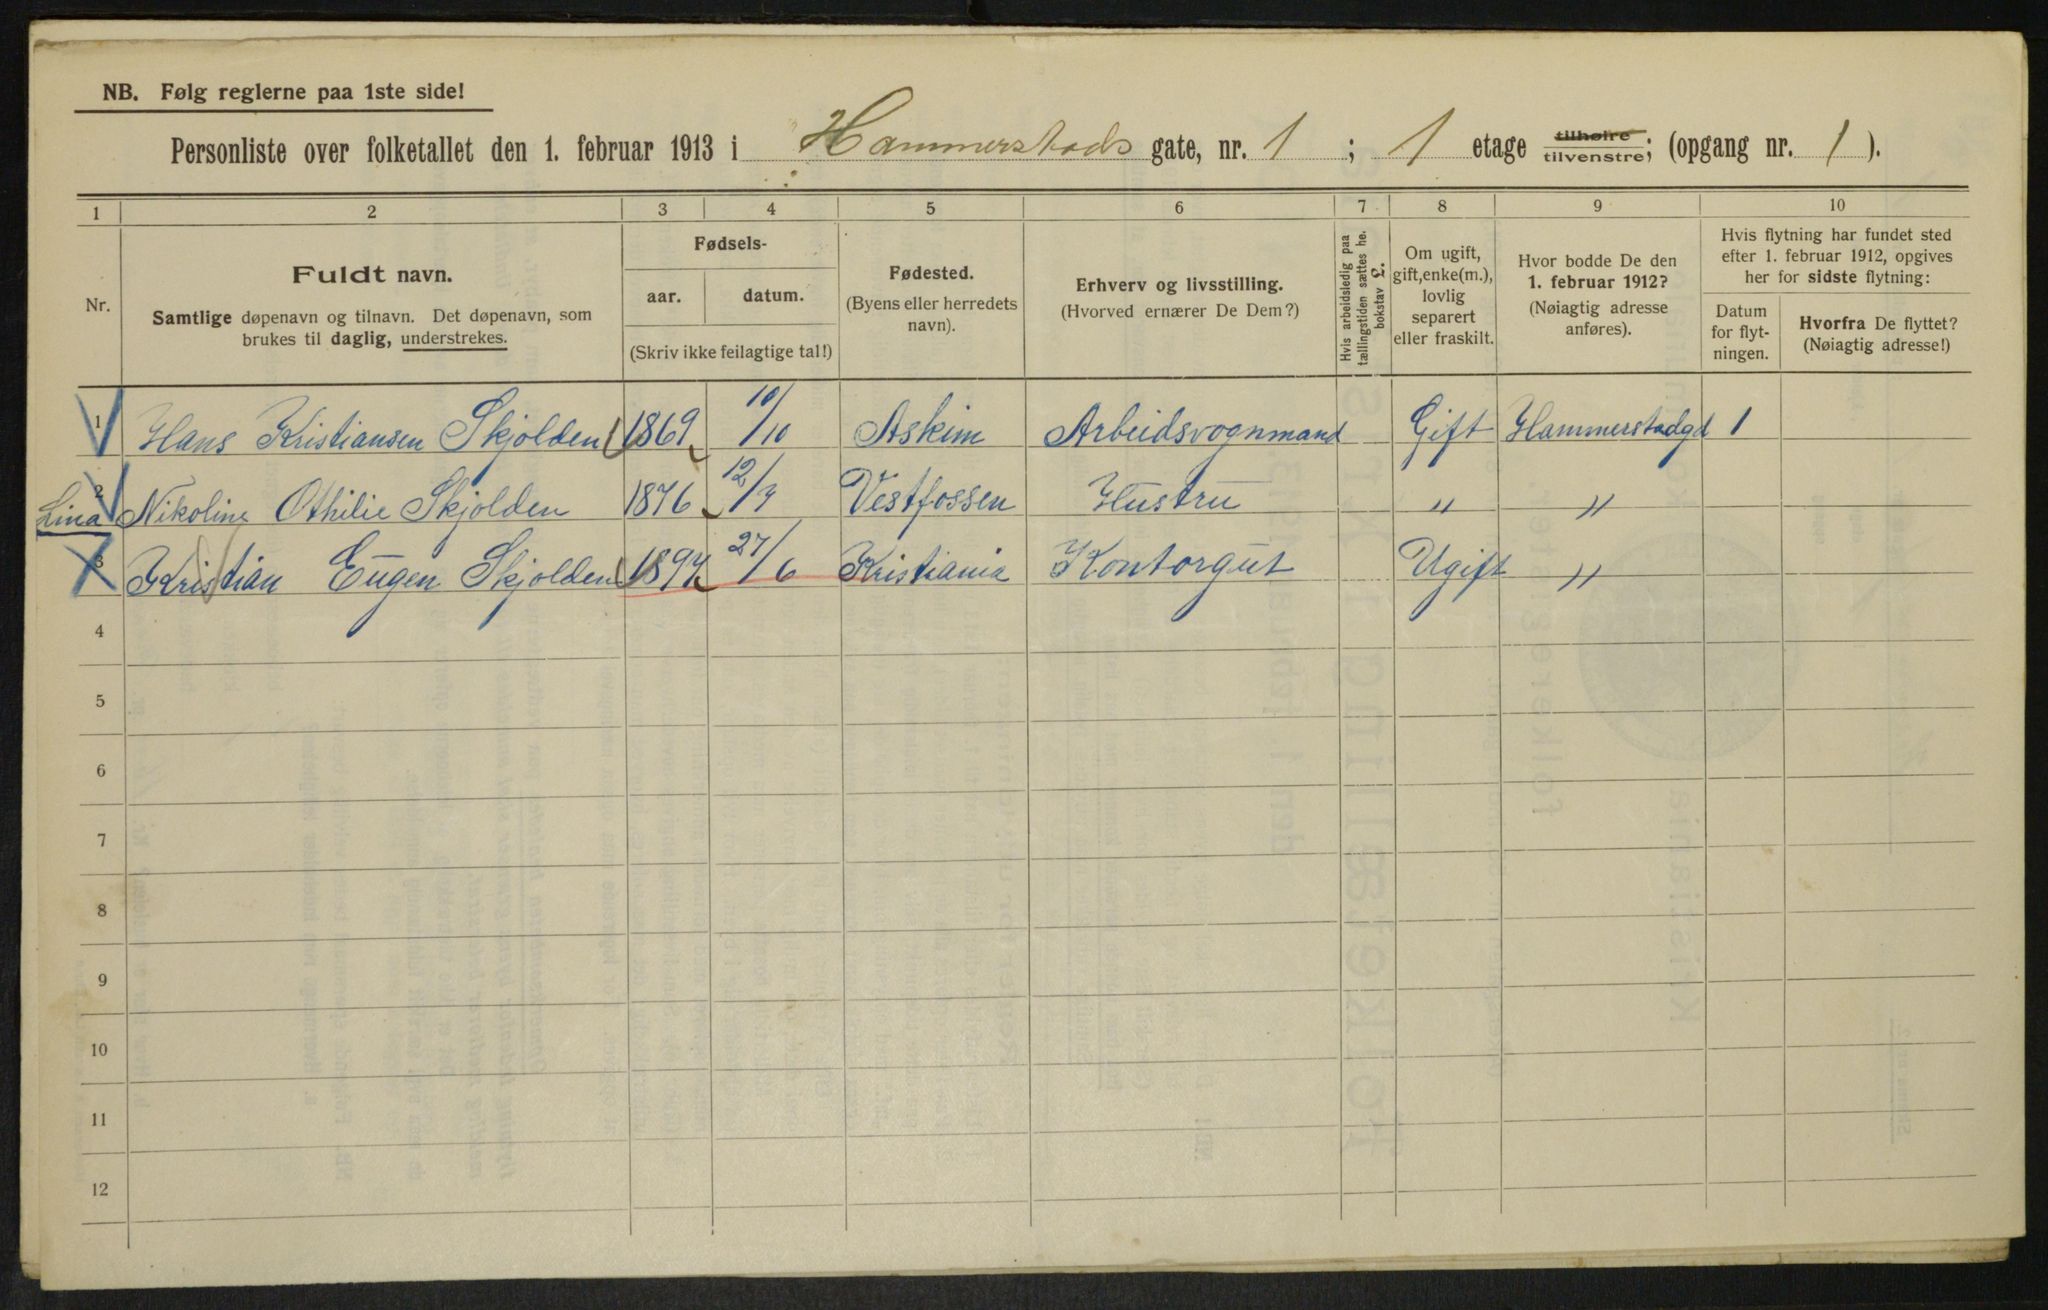 NB. Følg reglerne paa 1ste side!
Personliste over folketallet den 1. februar 1913 i Hammerstads gate, nr. 1 ; 1 etage tilhøire tilvenstre; (opgang nr. 1 ).
1 2 3 4 5 6 7 8 9 10
Nr.
Fuldt navn.
Samtlige døpenavn og tilnavn. Det døpenavn, som
brukes til daglig, understrekes.
Fødsels-
aar. datum.
(Skriv ikke feilagtige tal!)
Fødested.
(Byens eller herredets
navn).
Erhverv og livsstilling.
(Hvorved ernærer De Dem?)
Hvis arbeidsledig paa
tællingstiden sættes he.
bokstav L.
Om ugift,
gift, enke(m.),
lovlig
separert
eller fraskilt.
Hvor bodde De den
1. februar 1912?
(Nøiagtig adresse
anføres).
Hvis flytning har fundet sted
efter 1. februar 1912, opgives
her for sidste flytning:
Datum
for flyt-
ningen.
Hvorfra De flyttet?
(Nøiagtig adresse!)
1 Hans Kristiansen Skjolden 1869 10/10 Askim Arbeidsvognmand Gift Hammerstadgd 1
2 Lina Nikoline Othilie Skjolden 1876 12/3 Vestfossen Hustru " "
3 Kristian Eugen Skjolden 1897 27/6 Kristiania Kontorgut Ugift "
4
5
6
7
8
9
10
11
12